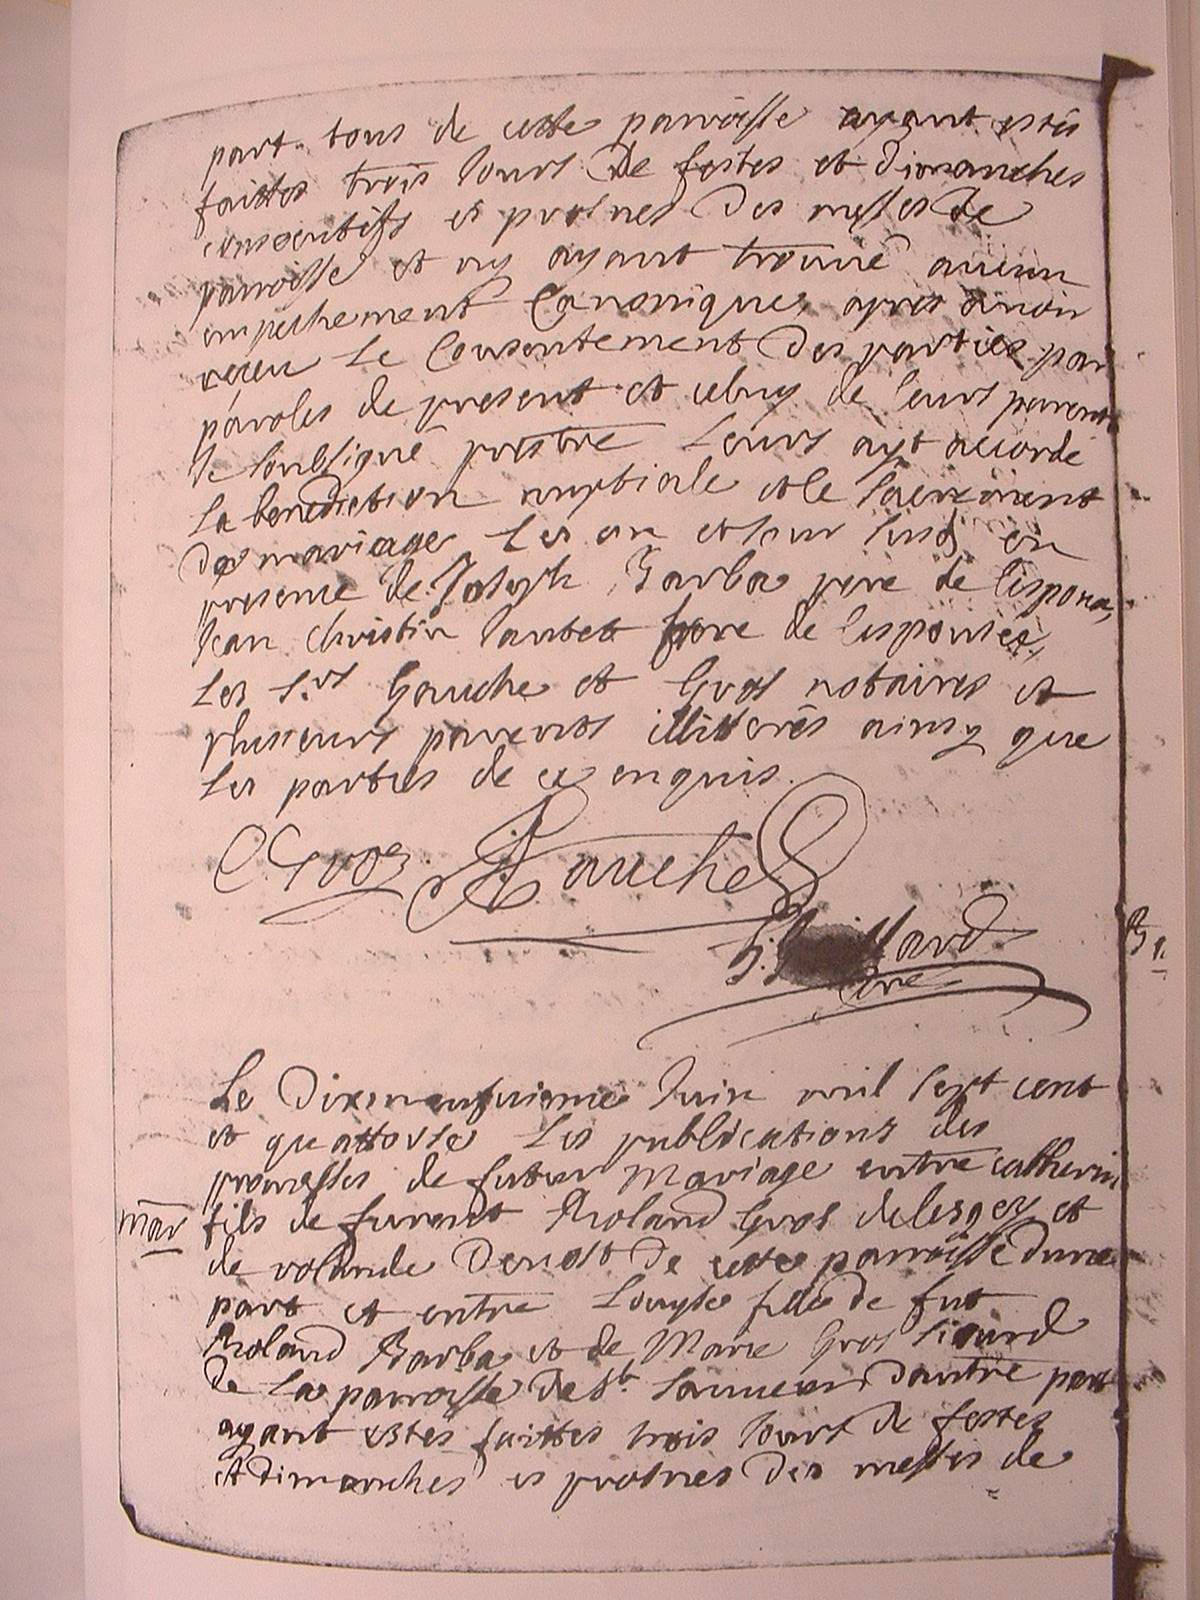 part. tous de cette parroisse ayant estés
faittes trois Jours de festes et dimanches
consecutifs es prosnes des messes de
parroisse et ny ayant trouvé aucun
empechement Canonique, apres avoir
reçeu Le Consentement des parties par
paroles de present et celuy de leurs parents
Je soubsigné prestre Leurs ayt accordé
La benediction nuptiale et le sacrement
de mariage Les an et Jour susd. en
presence de Joseph Barba pere de lespoux,
Jean christin Jaubet frere de lespousée,
Les S.rs Gauche et Gros notaires et
plusieurs parents illiterés ainsy que
Les parties de ce enquis.
Gros Gauche
mar
Le Dixneufuieme Juin mil sept cent
et quattorse Les publications des
promesses de futur Mariage entre catherin
fils de furent Roland Gros et
de volande Devost de cette parroisse dune
part et entre Louyse fille de fut
Roland Barba et de Marie Gros Sicard
de La parroisse de St. Sauueur dautre part
ayant estés faittes trois Jours de festes
et dimanches es prosnes des messes de